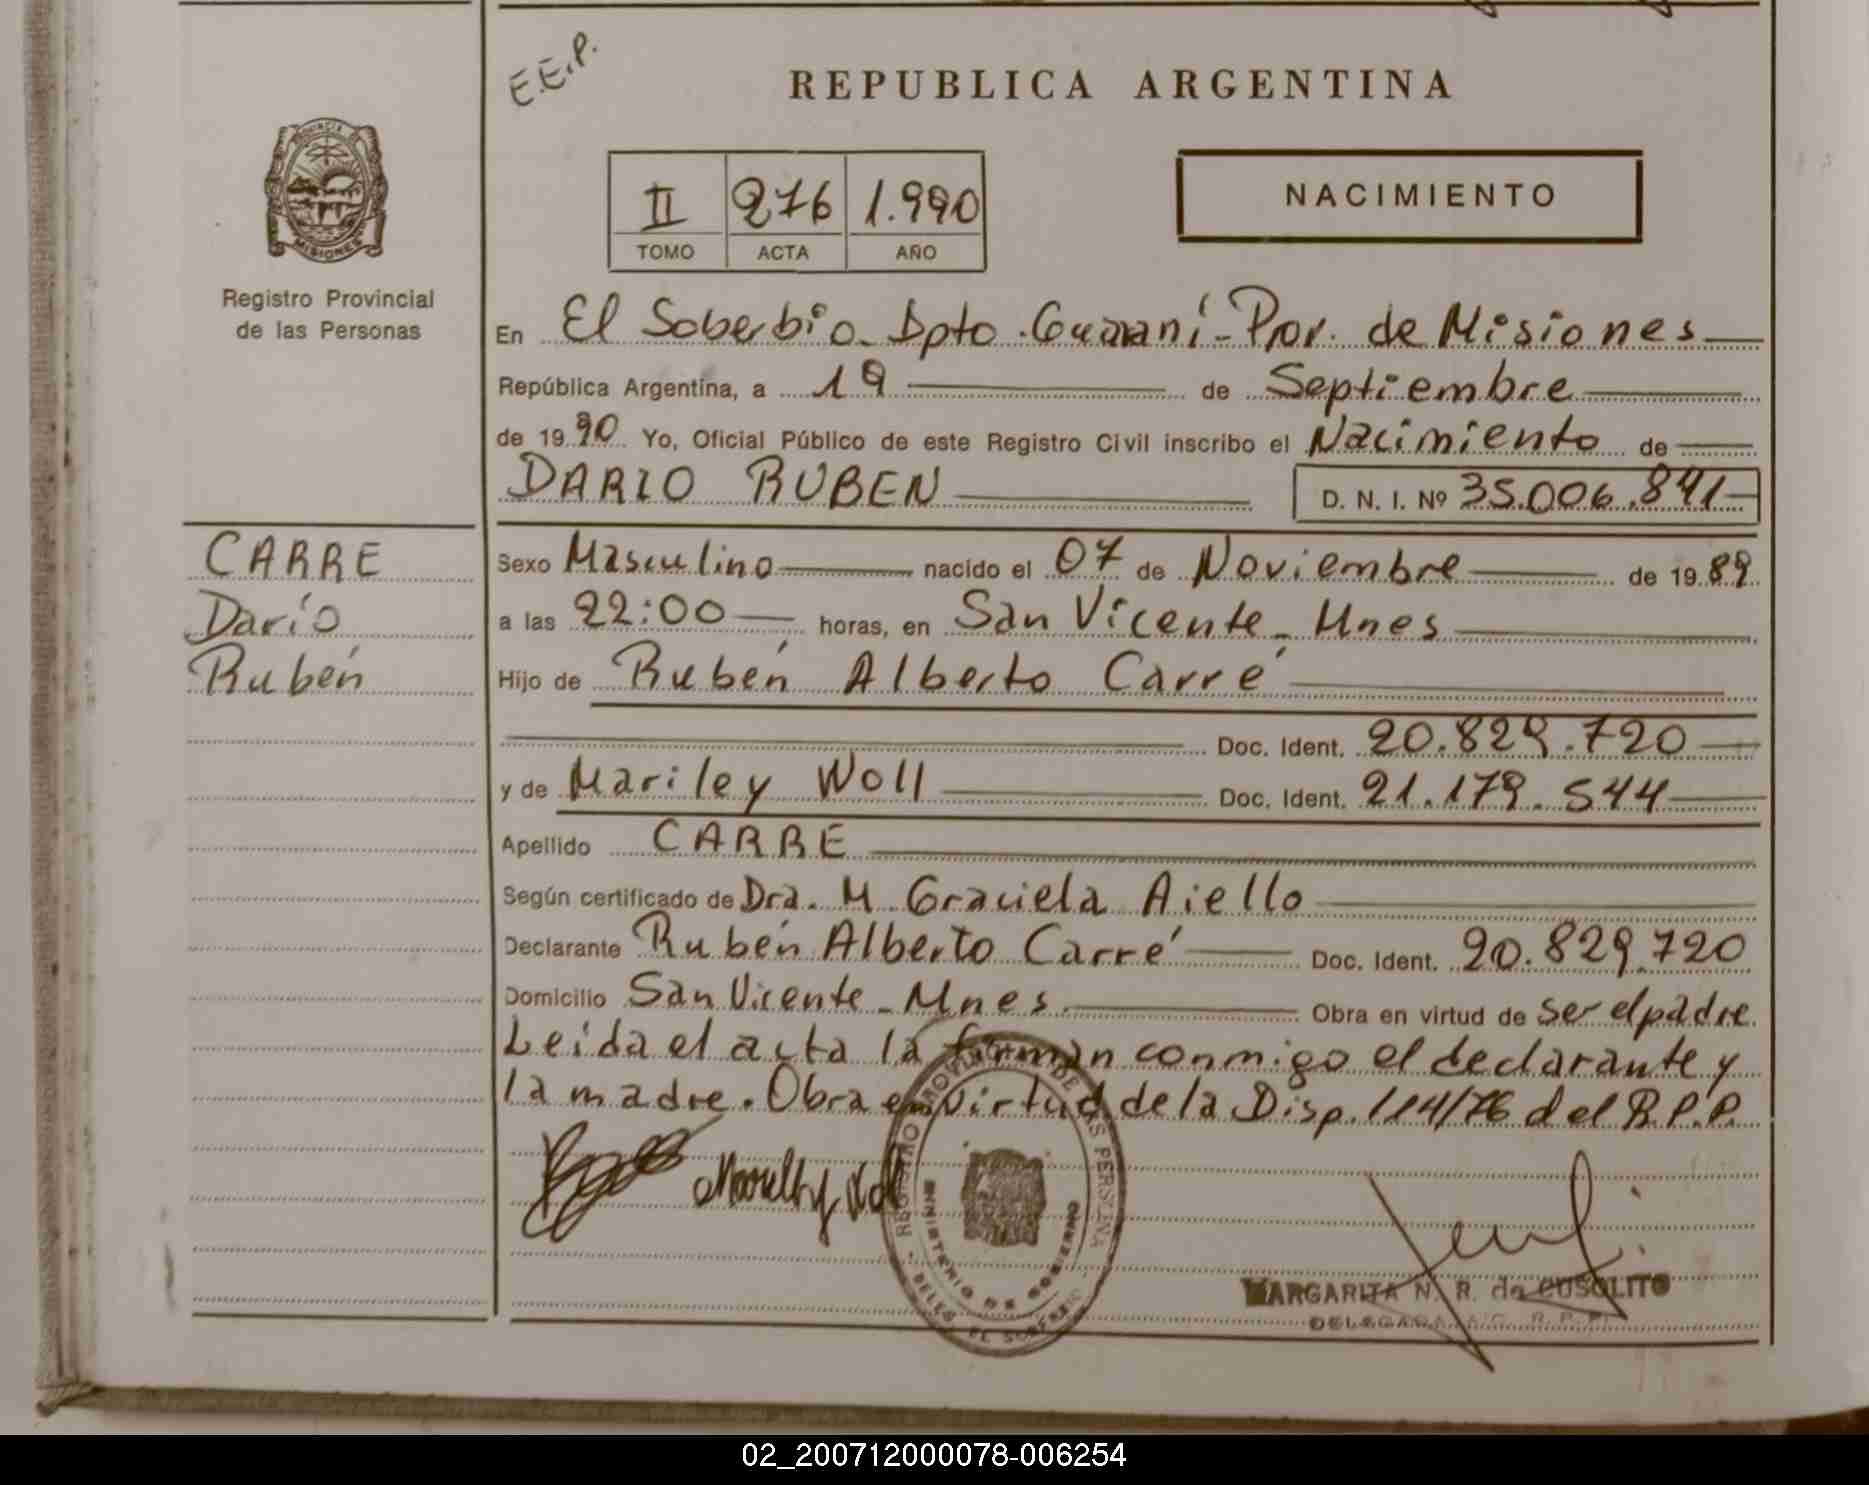 E.E.P.
REPUBLICA ARGENTINA
II 276 1.990
TOMO ACTA AÑO
NACIMIENTO
PROVINCIA DE
MISIONES
Registro Provincial
de las Personas
En El Soberbio - Dpto. Guaraní - Prov. de Misiones
República Argentina, a 19 de Septiembre
de 19 90 Yo, Oficial Público de este Registro Civil inscribo el Nacimiento de
DARIO RUBEN D. N. I. Nº 35.006.891
CARRE
Darío
Rubén
Sexo Masculino nacido el 07 de Noviembre de 19 89
a las 22:00 horas, en San Vicente - Mnes
Hijo de Rubén Alberto Carré
Doc. Ident. 20.829.720
y de Mariley Woll Doc. Ident. 21.179.544
Apellido CARRE
Según certificado de Dra. M. Graciela Aiello
Declarante Rubén Alberto Carré Doc. Ident. 20.829.720
Domicilio San Vicente - Mnes. Obra en virtud de ser el padre
Leída el acta la firman conmigo el declarante y
la madre. Obra en virtud de la Disp. 114/76 del R.P.P.
REGISTRO PROVINCIAL DE LAS PERSONAS
MINISTERIO DE GOBIERNO
DELEG. EL SOBERBIO
MARGARITA N. R. de CUSOLITO
DELEGADA R. P. P.
02_200712000078-006254